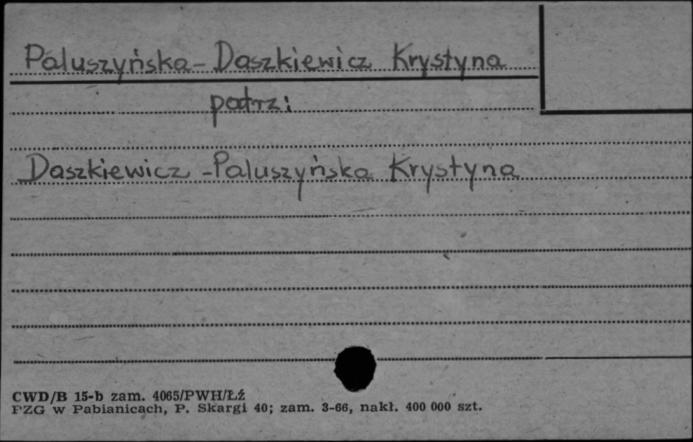 Paluszyńska-Daszkiewicz Krystyna
patrz:
Daszkiewicz-Paluszyńska Krystyna
CWD/B 15-b zam. 4065/PWH/Łź
PZG w Pabianicach, P. Skargi 40; zam. 3-66, nakł. 400 000 szt.